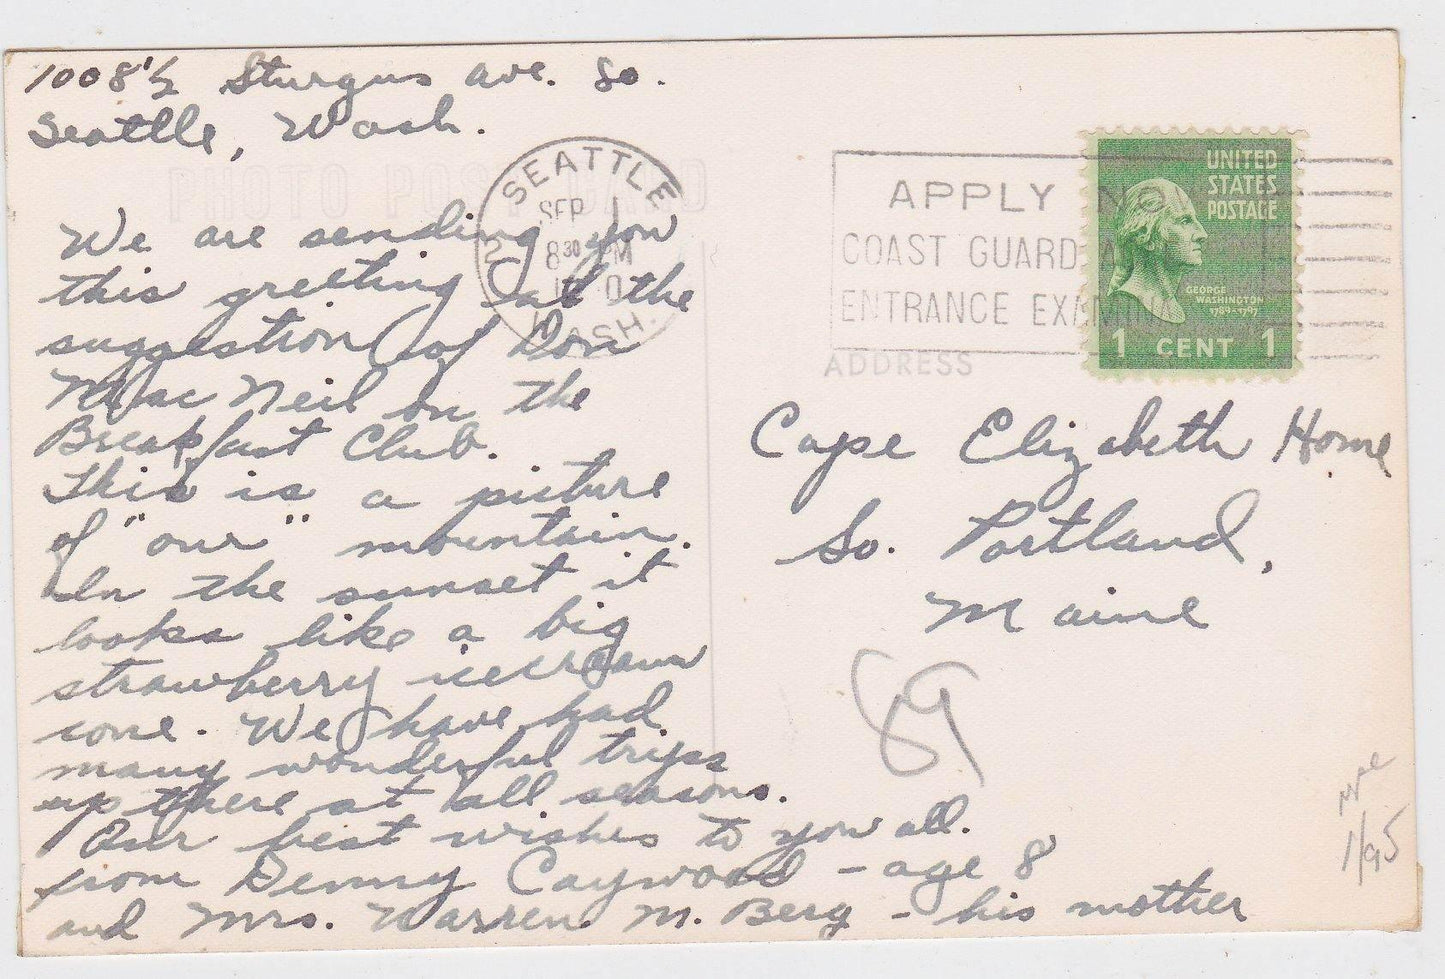 1008½ Sturgus Ave. So.
Seattle, Wash.
PHOTO POST CARD
SEATTLE
SEP
8 30 PM
WASH.
APPLY NO
COAST GUARD A
ENTRANCE EXAMINA
UNITED
STATES
POSTAGE
GEORGE
WASHINGTON
1789-1797
1 CENT 1
ADDRESS
We are sending you
this greeting at the
suggestion of Don
MacNeil on the
Breakfast Club.
This is a picture
of "our" mountain.
In the sunset it
looks like a big
strawberry icecream
cone. We have had
many wonderful trips
up there at all seasons.
Our best wishes to you all.
from Denny Caywood - age 8
and Mrs. Warren M. Berg - his mother
Cape Elizabeth Home
So. Portland,
Maine
89
1/95